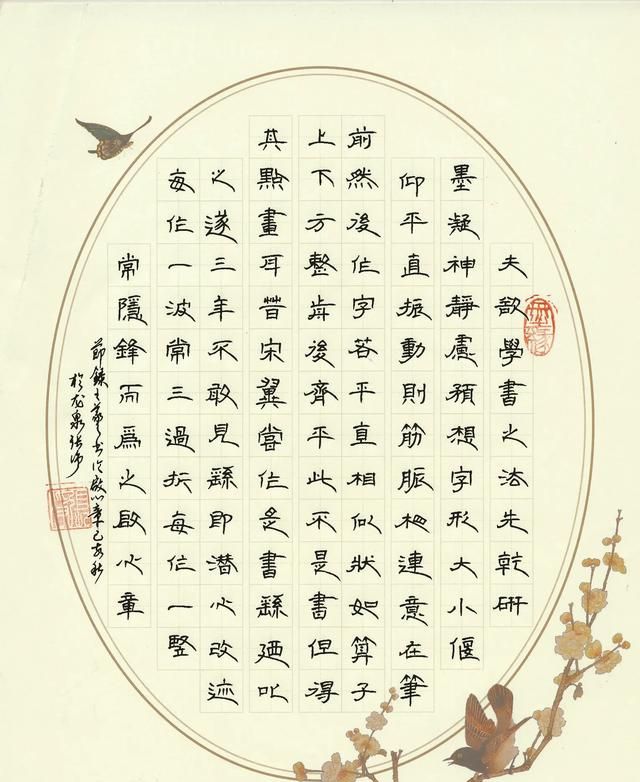 夫欲學書之法先乾研
墨凝神靜慮預想字形大小偃
仰平直振動則筋脈相連意在筆
前然後作字若平直相似狀如算子
上下方整歬後齊平此不是書但得
其點畫耳昔宋翼嘗作是書繇廼叱
之遂三年不敢見繇即潛心改迹
每作一波常三過折每作一豎
常隱鋒而爲之啟心章
節錄王羲之书论啟心章己亥秋
於龙泉張沛